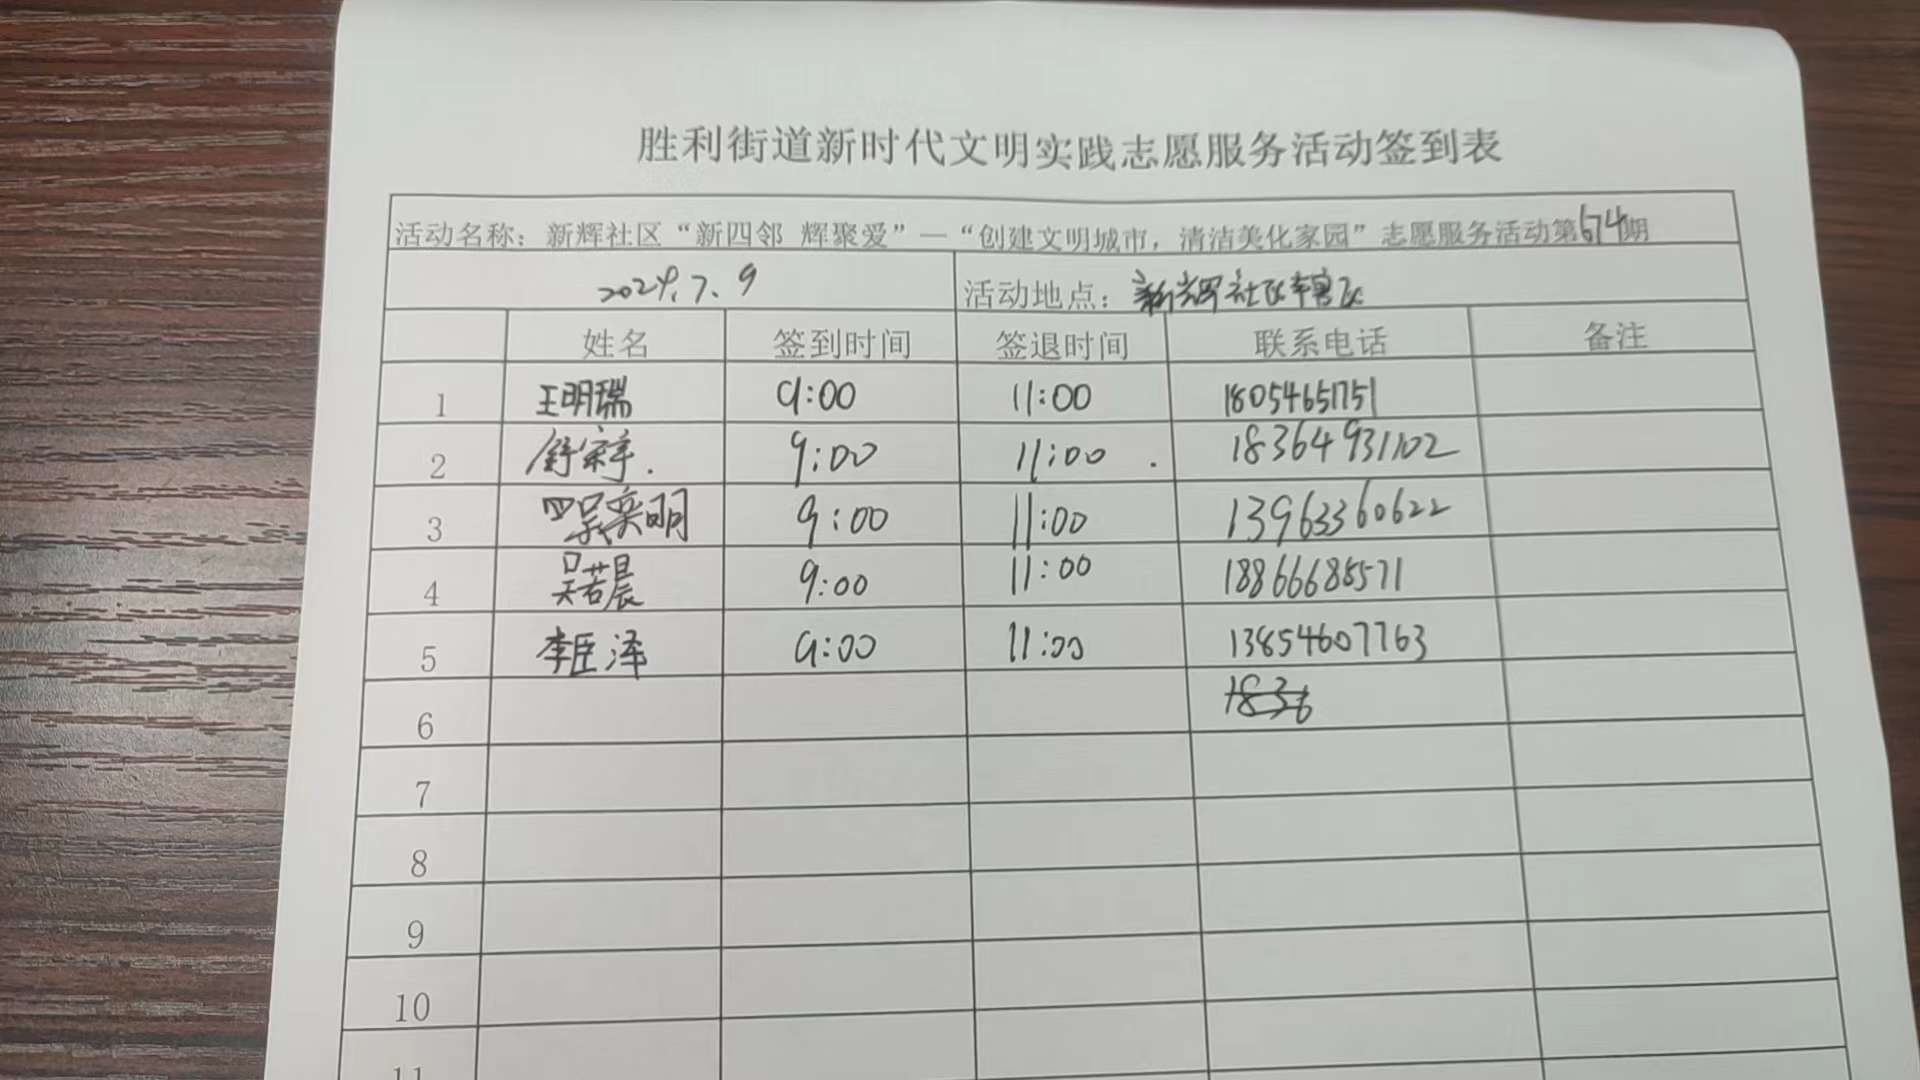 胜利街道新时代文明实践志愿服务活动签到表
活动名称：新辉社区“新四邻 辉聚爱”—“创建文明城市，清洁美化家园”志愿服务活动第674期
2024.7.9 活动地点：新辉社区辖区
姓名 签到时间 签退时间 联系电话 备注
1 王明瑞 9:00 11:00 18054651751
2 9:00 11:00 18364931102
3 9:00 11:00 13963360622
4 吴若晨 9:00 11:00 18866688571
5 李臣泽 9:00 11:00 13854607763
6 1836
7
8
9
10
11